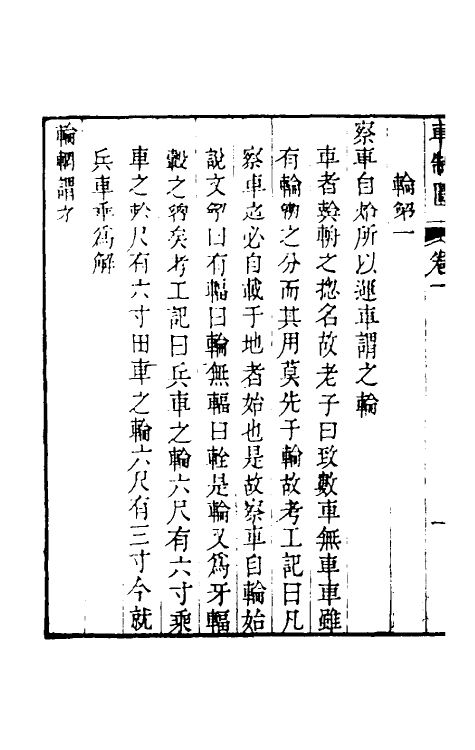 車制圖 卷一 一
輪解一
察車自始所以運車謂之輪
車者輿輪之揔名故老子曰致數車無車車雖
有輪之分而其用莫先于輪故考工記曰凡
察車之道必自載于地者始也是故察車自輪始
說文曰有輻曰輪無輻曰輇是輪又爲牙輻
轂之矣考工記曰兵車之輪六尺有六寸乘
車之尺有六寸田車之輪六尺有三寸今就
兵車乘爲解
輪輞謂才